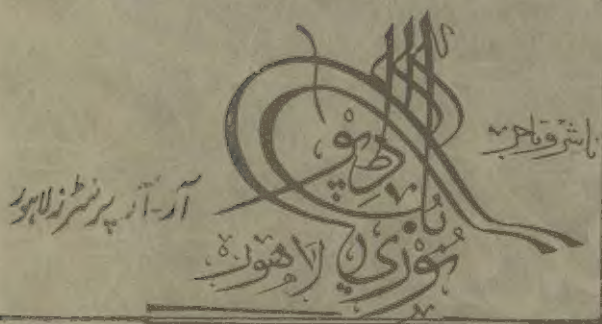 ناشر و تاجر
نوری بک ڈپو
لاہور
آر-آر پرنٹرز لاہور